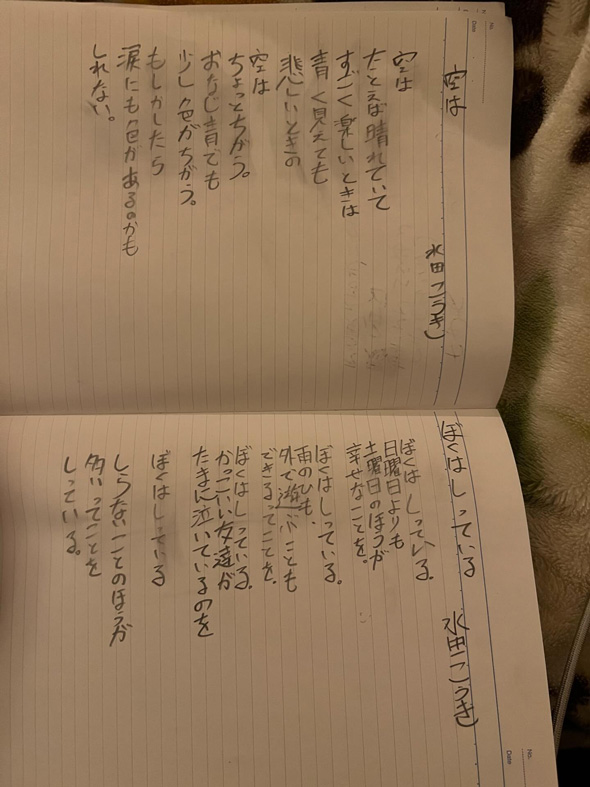 空は
水田こうき
空は
たとえば晴れていて
すごく楽しいときは
青く見えても
悲しいときの
空は
ちょっとちがう。
おなじ青でも
少し色がちがう。
もしかしたら
涙にも色があるのかも
しれない。
No.
Date
ぼくはしっている
水田こうき
ぼくはしっている。
日曜日よりも
土曜日のほうが
幸せなことを。
ぼくはしっている。
雨のひも、
外で遊ぶことも
できるってことを。
ぼくはしっている。
かっこいい友達が
たまに泣いているのを
ぼくはしっている
しらないことのほうが
多いってことを
しっている。
No.
Date